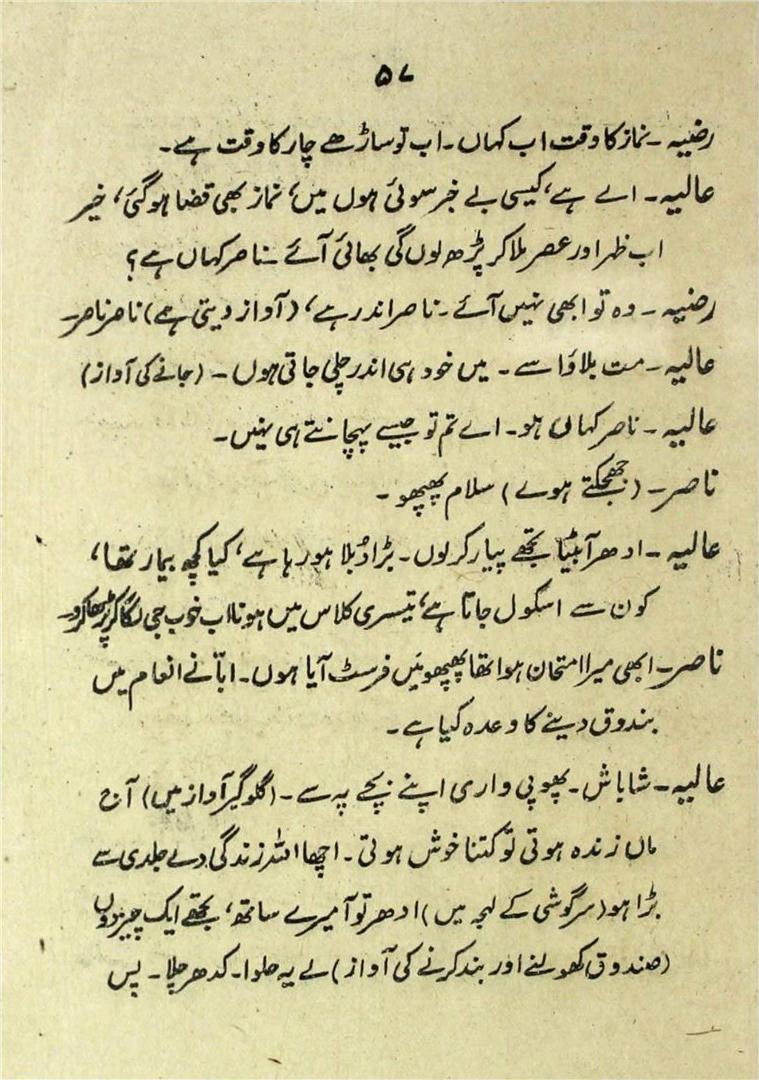 ۵۷
رضیہ ۔ نماز کا وقت اب کہاں ۔ اب تو ساڑھے چار کا وقت ہے ۔
عالیہ ۔ اے ہے، کیسی بے خبر سوئی ہوں میں، نماز بھی قضا ہوگئی، خیر
اب ظہر اور عصر ملا کر پڑھ لوں گی بھائی آئے ۔ ناصر کہاں ہے ؟
رضیہ ۔ وہ تو ابھی نہیں آئے ۔ ناصر اندر ہے، (آواز دیتی ہے) ناصر ناصر ۔
عالیہ ۔ مت بلاؤ اسے ۔ میں خود ہی اندر چلی جاتی ہوں ۔ (جانے کی آواز)
عالیہ ۔ ناصر کہاں ہو ۔ اے تم تو جیسے پہچانتے ہی نہیں ۔
ناصر ۔ (جھجکتے ہوے) سلام پھپھو ۔
عالیہ ۔ ادھر آ بیٹیا تجھے پیار کر لوں ۔ بڑا دُبلا ہو رہا ہے، کیا کچھ بیمار تھا،
کون سے اسکول جاتا ہے، تیسری کلاس میں ہو نا اب خوب جی لگا کر پڑھا کرو ۔
ناصر ۔ ابھی میرا امتحان ہوا تھا پھپھو میں فرسٹ آیا ہوں ۔ ابّا نے انعام میں
بندوق دینے کا وعدہ کیا ہے ۔
عالیہ ۔ شاباش ۔ پھوپی واری اپنے بچے پہ سے ۔ (گلوگیر آواز میں) آج
ماں زندہ ہوتی تو کتنا خوش ہوتی ۔ اچھا اللہ زندگی دے جلدی سے
بڑا ہو (سرگوشی کے لہجہ میں) ادھر تو آ میرے ساتھ، تجھے ایک چیز دوں
(صندوق کھولنے اور بند کرنے کی آواز) لے یہ حلوا ۔ کدھر چلا ۔ بس